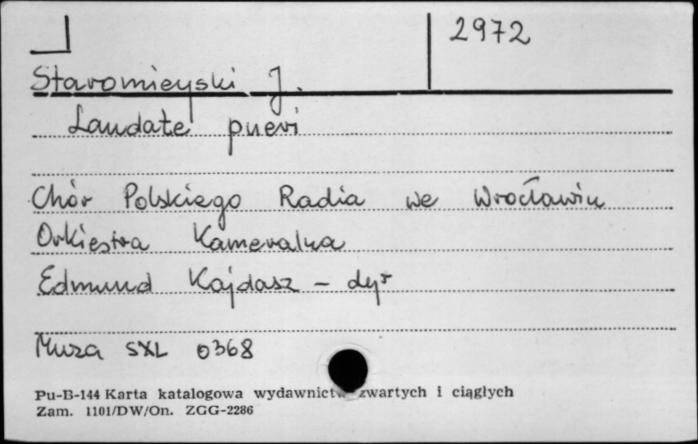 2972
Staromieyski J.
Laudate pueri
Chór Polskiego Radia we Wrocławiu
Orkiestra Kameralna
Edmund Kajdasz - dyr
Muza SXL 0368
Pu-B-144 Karta katalogowa wydawnictw zwartych i ciągłych
Zam. 1101/DW/On. ZGG-2286